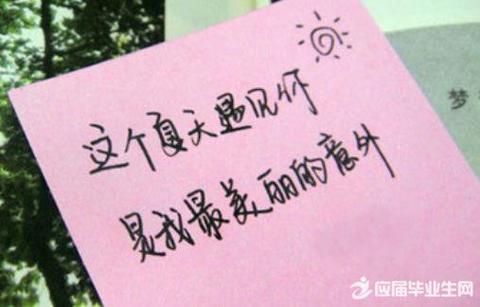 这个夏天遇见你
是我最美丽的意外
梦
应届毕业生网